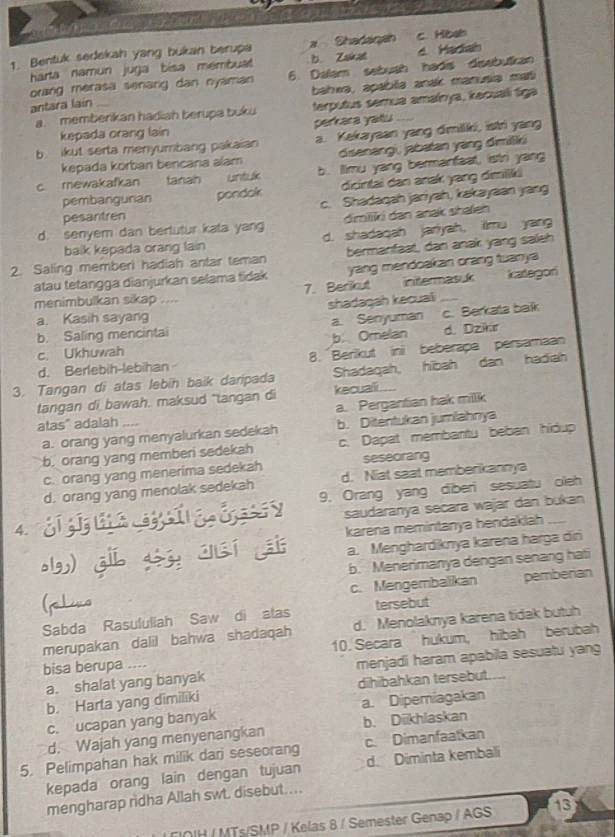 1. Bentuk sedekah yang bukan berupa
harta namun juga bisa membuat
orang merasa senang dan nyaman
antara lain ....
a. memberikan hadiah berupa buku
kepada orang lain
b. ikut serta menyumbang pakaian
kepada korban bencana alam
c. mewakafkan tanah untuk
pembangunan pondok
pesantren
d. senyem dan bertutur kata yang
baik kepada orang lain
2. Saling memberi hadiah antar teman
atau tetangga dianjurkan selama tidak
menimbulkan sikap ....
a. Kasih sayang
b. Saling mencintai
c. Ukhuwah
d. Berlebih-lebihan
3. Tangan di atas lebih baik daripada
tangan di bawah. maksud "tangan di
atas" adalah ....
a. orang yang menyalurkan sedekah
b. orang yang memberi sedekah
c. orang yang menerima sedekah
d. orang yang menolak sedekah
4. لَا تَحْقِرَنَّ مِنَ الْمَعْرُوفِ شَيْئًا وَلَوْ أَنْ
تَلْقَى أَخَاكَ بِوَجْهٍ طَلْقٍ (رواه
مسلم)
Sabda Rasulullah Saw di atas
merupakan dalil bahwa shadaqah
bisa berupa ....
a. shalat yang banyak
b. Harta yang dimiliki
c. ucapan yang banyak
d. Wajah yang menyenangkan
5. Pelimpahan hak milik dari seseorang
kepada orang lain dengan tujuan
mengharap ridha Allah swt. disebut....
a. Shadaqah c. Hibah
b. Zakat d. Hadiah
6. Dalam sebuah hadis disebutkan
bahwa, apabila anak manusia mati
terputus semua amalnya, kecuali tiga
perkara yaitu ....
a. Kekayaan yang dimiliki, istri yang
disenangi, jabatan yang dimiliki
b. Ilmu yang bermanfaat, istri yang
dicintai dan anak yang dimiliki
c. Shadaqah jariyah, kekayaan yang
dimiliki dan anak shaleh
d. shadaqah jariyah, ilmu yang
bermanfaat, dan anak yang saleh
yang mendoakan orang tuanya
7. Berikut initermasuk kategori
shadaqah kecuali ....
a. Senyuman c. Berkata baik
b. Omelan d. Dzikir
8. Berikut ini beberapa persamaan
Shadaqah, hibah dan hadiah
kecuali....
a. Pergantian hak milik
b. Ditentukan jumlahnya
c. Dapat membantu beban hidup
seseorang
d. Niat saat memberikannya
9. Orang yang diberi sesuatu oleh
saudaranya secara wajar dan bukan
karena memintanya hendaklah ....
a. Menghardiknya karena harga diri
b. Menerimanya dengan senang hati
c. Mengembalikan pemberian
tersebut
d. Menolaknya karena tidak butuh
10. Secara hukum, hibah berubah
menjadi haram apabila sesuatu yang
dihibahkan tersebut....
a. Diperniagakan
b. Diikhlaskan
c. Dimanfaatkan
d. Diminta kembali
FIQIH / MTs/SMP / Kelas 8 / Semester Genap / AGS 13